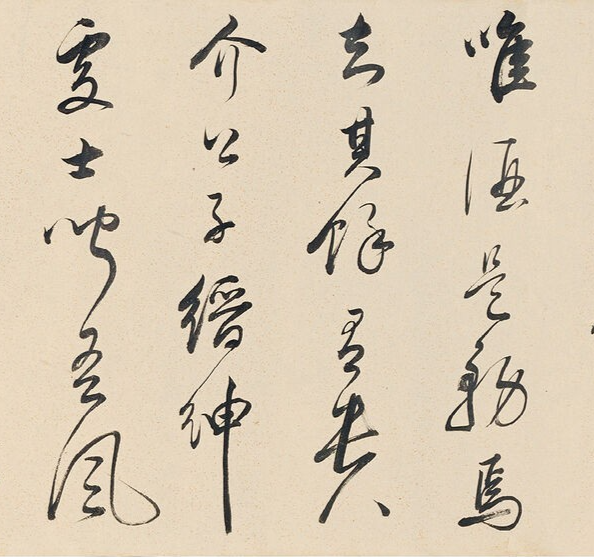 唯酒是務焉
知其餘有貴
介公子縉紳
處士聞吾風